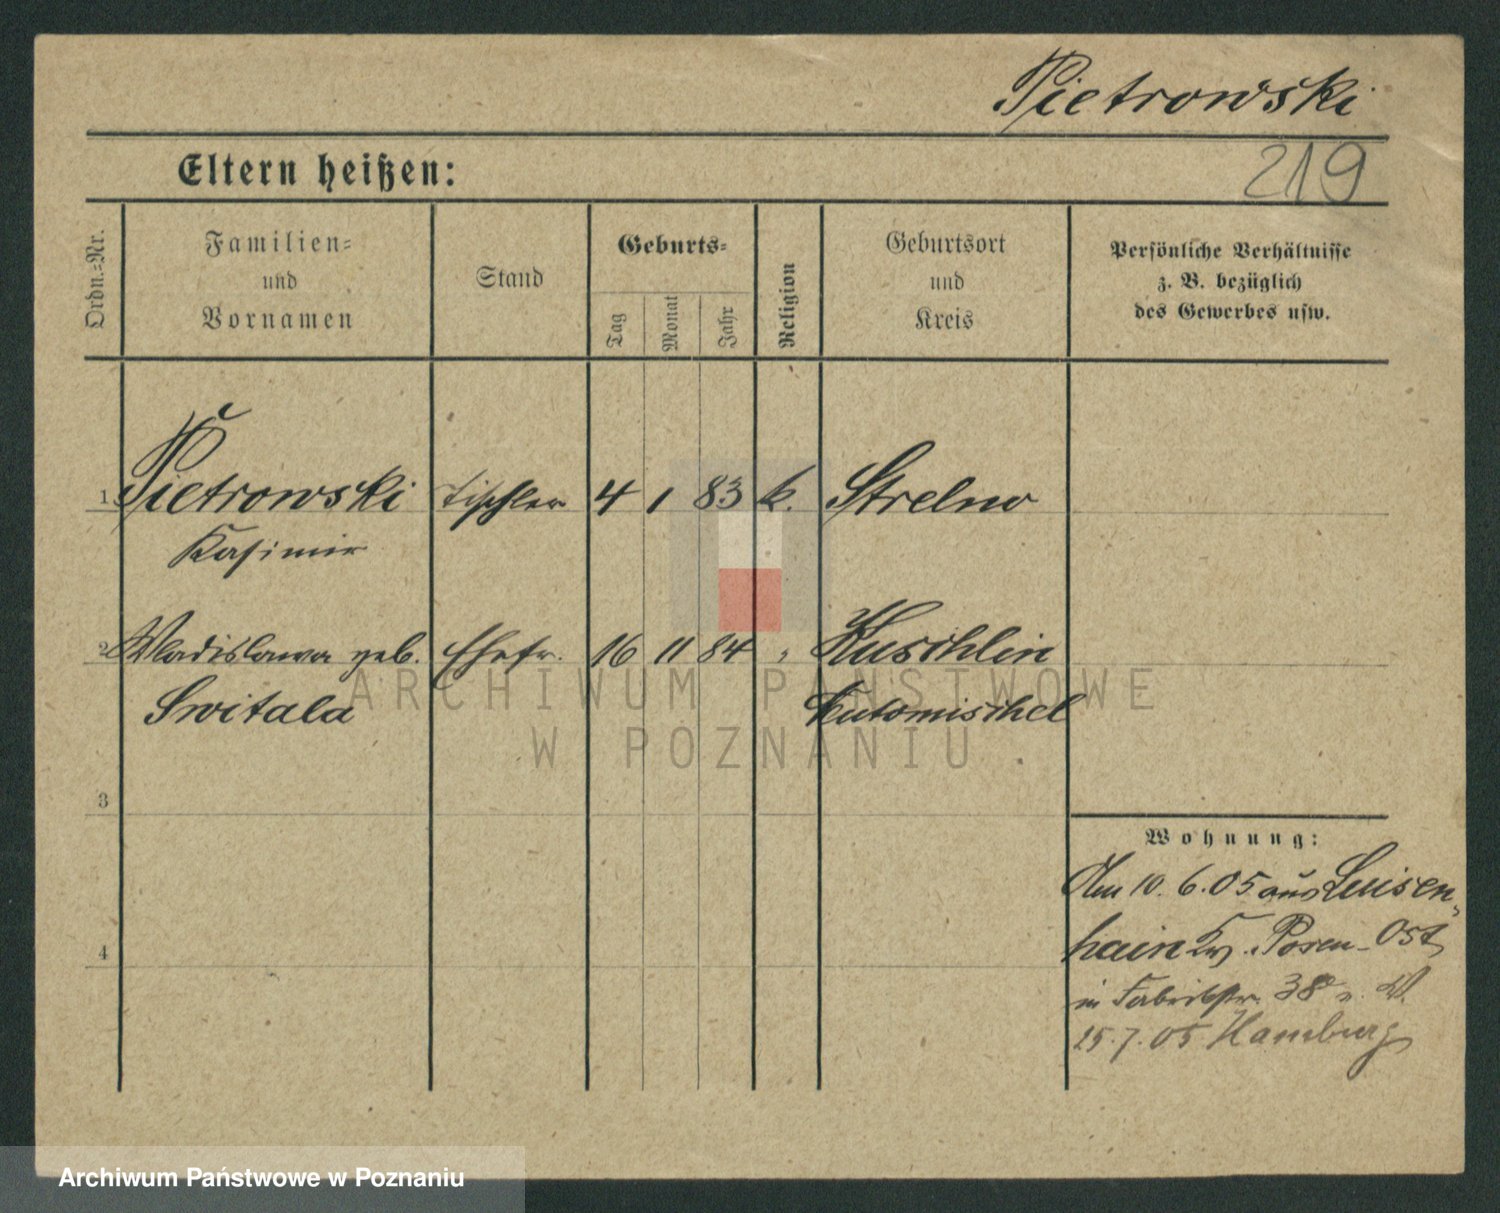 Pietrowski
219
Eltern heißen:
Ordn.=Nr.
Familien=
und
Vornamen
Stand
Geburts=
Tag
Monat
Jahr
Religion
Geburtsort
und
Kreis
Persönliche Verhältnisse
z. B. bezüglich
des Gewerbes usw.
1 Pietrowski Tischler 4 1 83 k. Strelno
Kasimir
2 Wladislawa geb. Ehefr. 16 11 84 " Kuschlin
Switala Neutomischel
3
4
Wohnung:
Am 10. 6. 05 aus Luisen-
hain Kr. Posen-Ost
in Fabrikstr. 38
15. 7. 05 Hamburg
ARCHIWUM PAŃSTWOWE
W POZNANIU
Archiwum Państwowe w Poznaniu